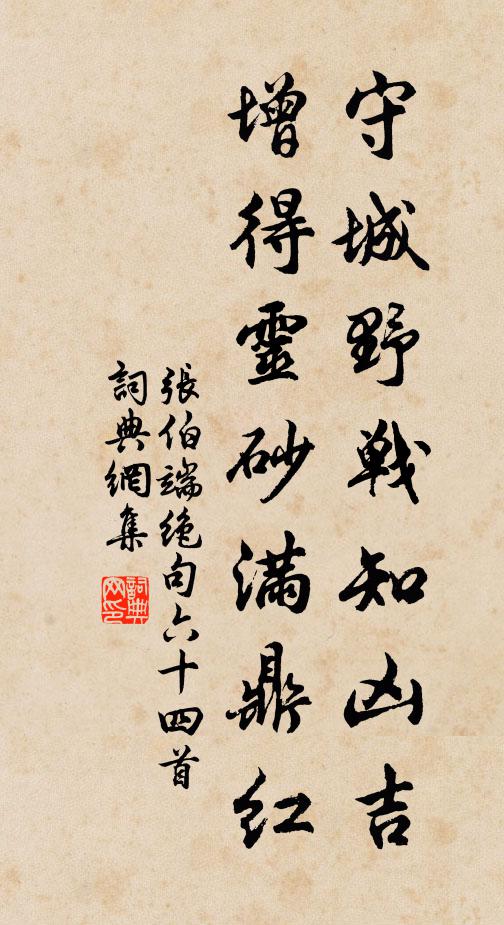 守城野戰知凶吉
增得靈砂滿鼎紅
張伯端絶句六十四首
詞典網集
詞典网印